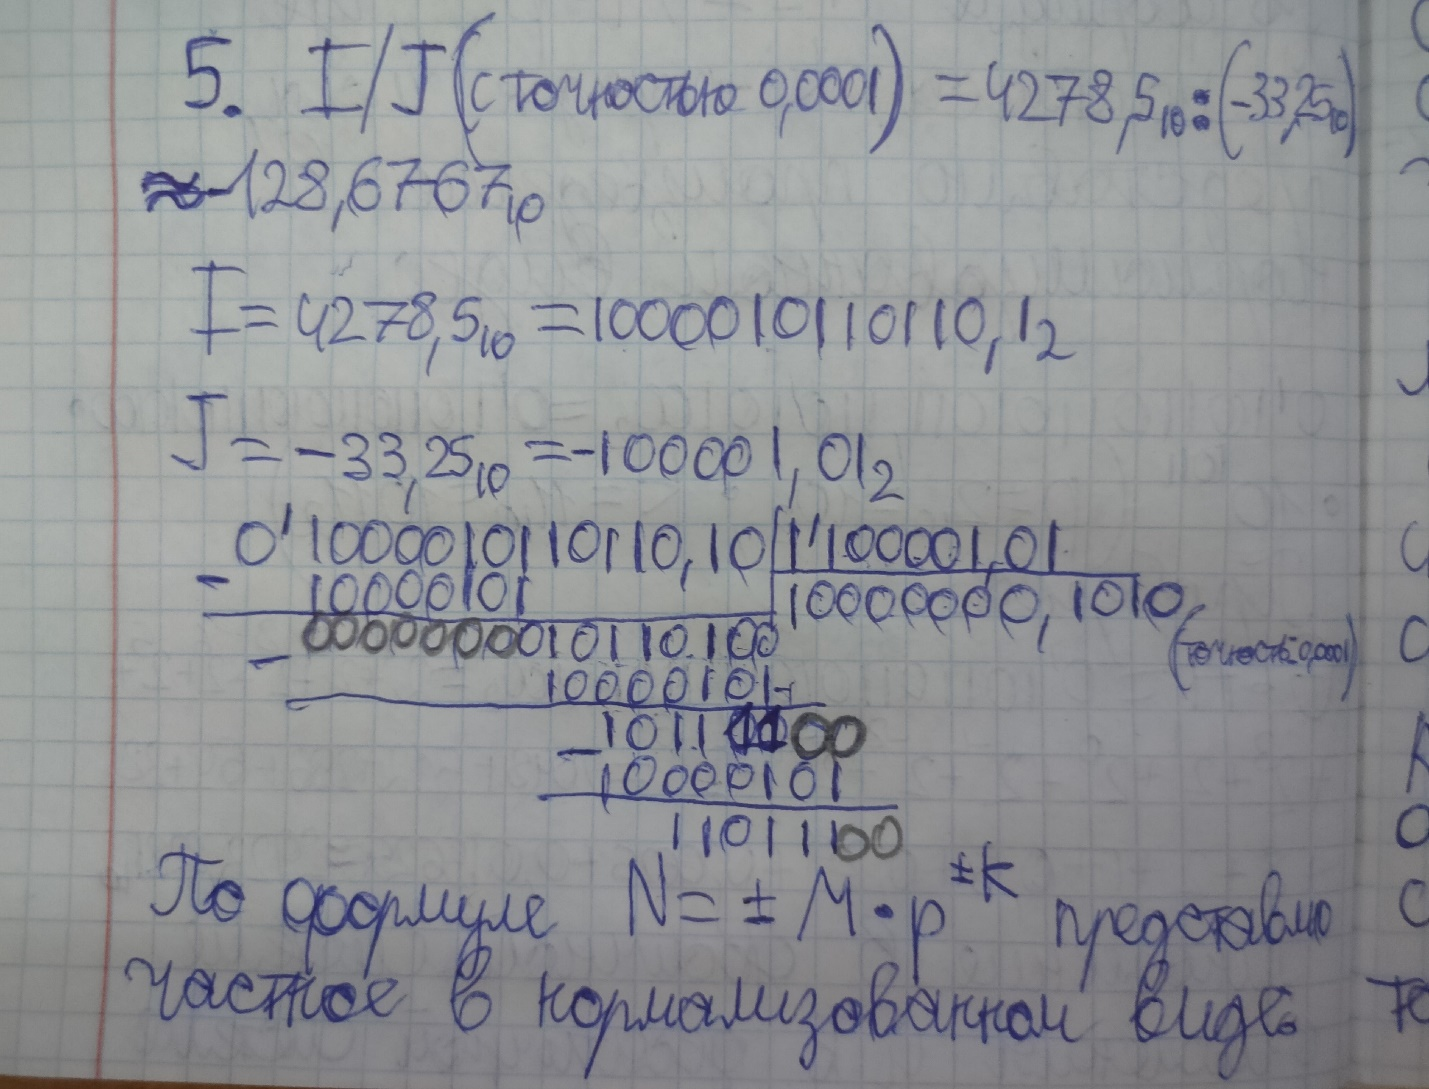 5. I/J (с точностью 0,0001) = 4278,5₁₀ : (-33,25₁₀)
≈ -128,6767₁₀
I = 4278,5₁₀ = 1000010110110,1₂
J = -33,25₁₀ = -100001,01₂
0'1000010110110,10 1'100001,01
- 10000101 10000000,1010,
(точность 0,0001)
0000000010110.100
- 10000101
- 10111100
10000101
11011100
По формуле N = ± M · p^±k представлю
частное в нормализованном виде.